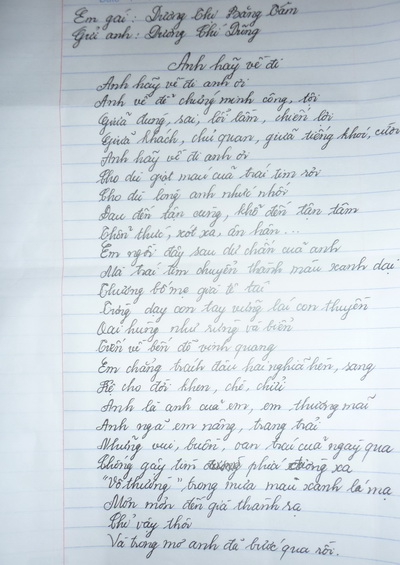 Em gái: Dương Thị Bằng Tâm
Gửi anh: Dương Chí Dũng
Anh hãy về đi
Anh hãy về đi anh ơi
Anh về để chứng minh công, tội
Giữa đúng, sai, tối tăm, chiến lời
Giữa khách, chủ quan, giữa tiếng khóc, cười
Anh hãy về đi anh ơi
Cho dù giọt máu của trái tim rơi
Cho dù lòng anh nhức nhối
Đau đến tận cùng, khổ đến tận tâm
Thổn thức, xót xa, ân hận...
Em ngồi đây sau dư chấn của anh
Mà trái tim chuyển thành màu xanh
Thương bố mẹ già tê tái
Trông day con tay vững lái con thuyền
Oai hùng như rừng và biển
Tiến về bến đỗ vinh quang
Em chẳng trách đâu hai nghĩa hèn, sang
Kệ cho đời khen, chê, chửi
Anh là anh của em, em thương mãi
Anh ngã em nâng, trang trải
Những vui, buồn, oan trái của ngày qua
Chông gây tím phía xa
"Vô thường", trong mưa màu xanh lá mạ
Mơn mởn đến già thanh sạ
Chỉ vậy thôi
Và trong mơ anh đã bước qua rồi.